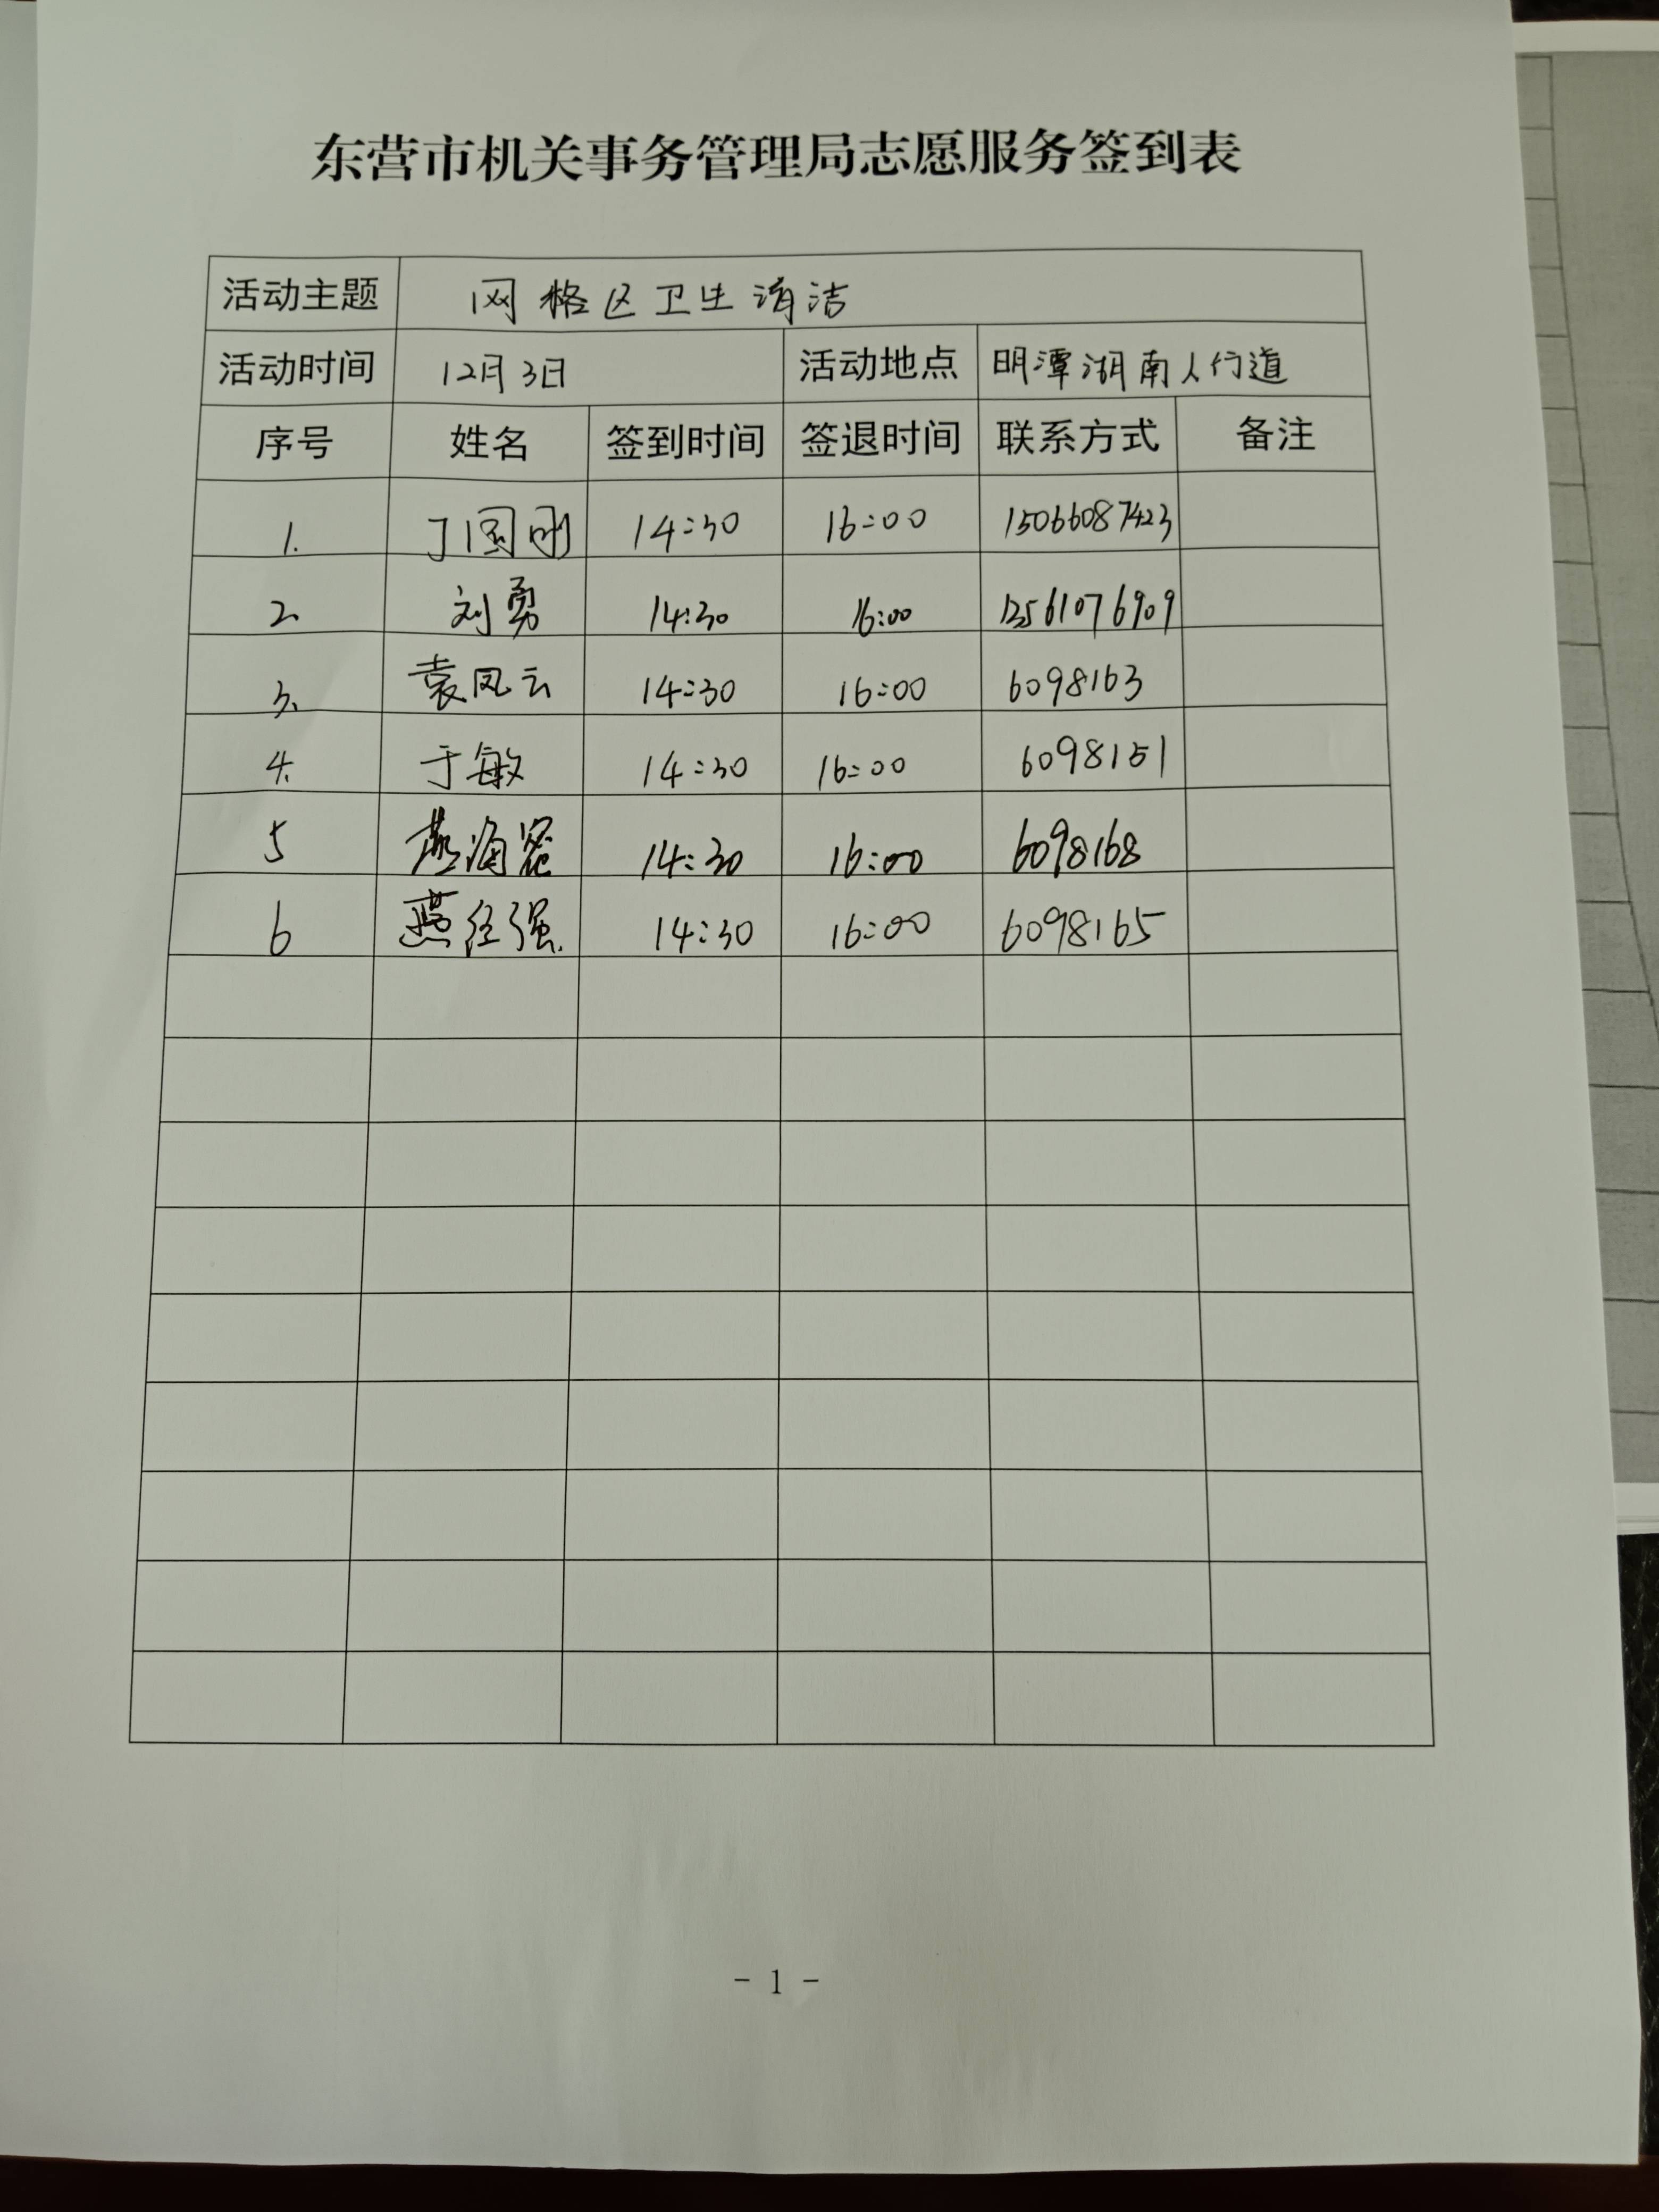 东营市机关事务管理局志愿服务签到表
活动主题 网格区卫生清洁
活动时间 12月3日 活动地点 明潭湖南人行道
序号 姓名 签到时间 签退时间 联系方式 备注
1. 丁国刚 14:30 16:00 15066087423
2. 刘勇 14:30 16:00 13561076909
3. 袁凤云 14:30 16:00 6098163
4. 于敏 14:30 16:00 6098151
5 燕海 14:30 16:00 6098168
6 燕经强 14:30 16:00 6098165
- 1 -